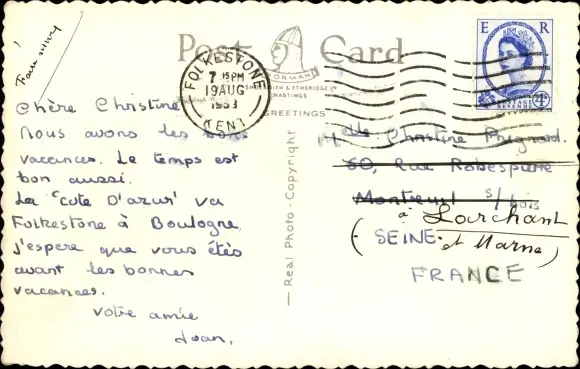 Faire suivre
Post Card
E R
FOLKESTONE
7 15 PM
19 AUG
KENT
NORMAN
& ETHERIDGE L
HASTINGS
GREETINGS
POSTAGE
REVENUE
4D
Chère Christine
Nous avons les bons
vacances. Le temps est
bon aussi.
La 'cote D'azur' va
Folkestone à Boulogne,
j'espere que vous étès
avant les bonnes
vacances.
votre amie
Joan.
Real Photo - Copyright
Melle Christine
60, Rue Robespierre
Montreuil s/bois
à Larchant
(SEINE et Marne)
FRANCE